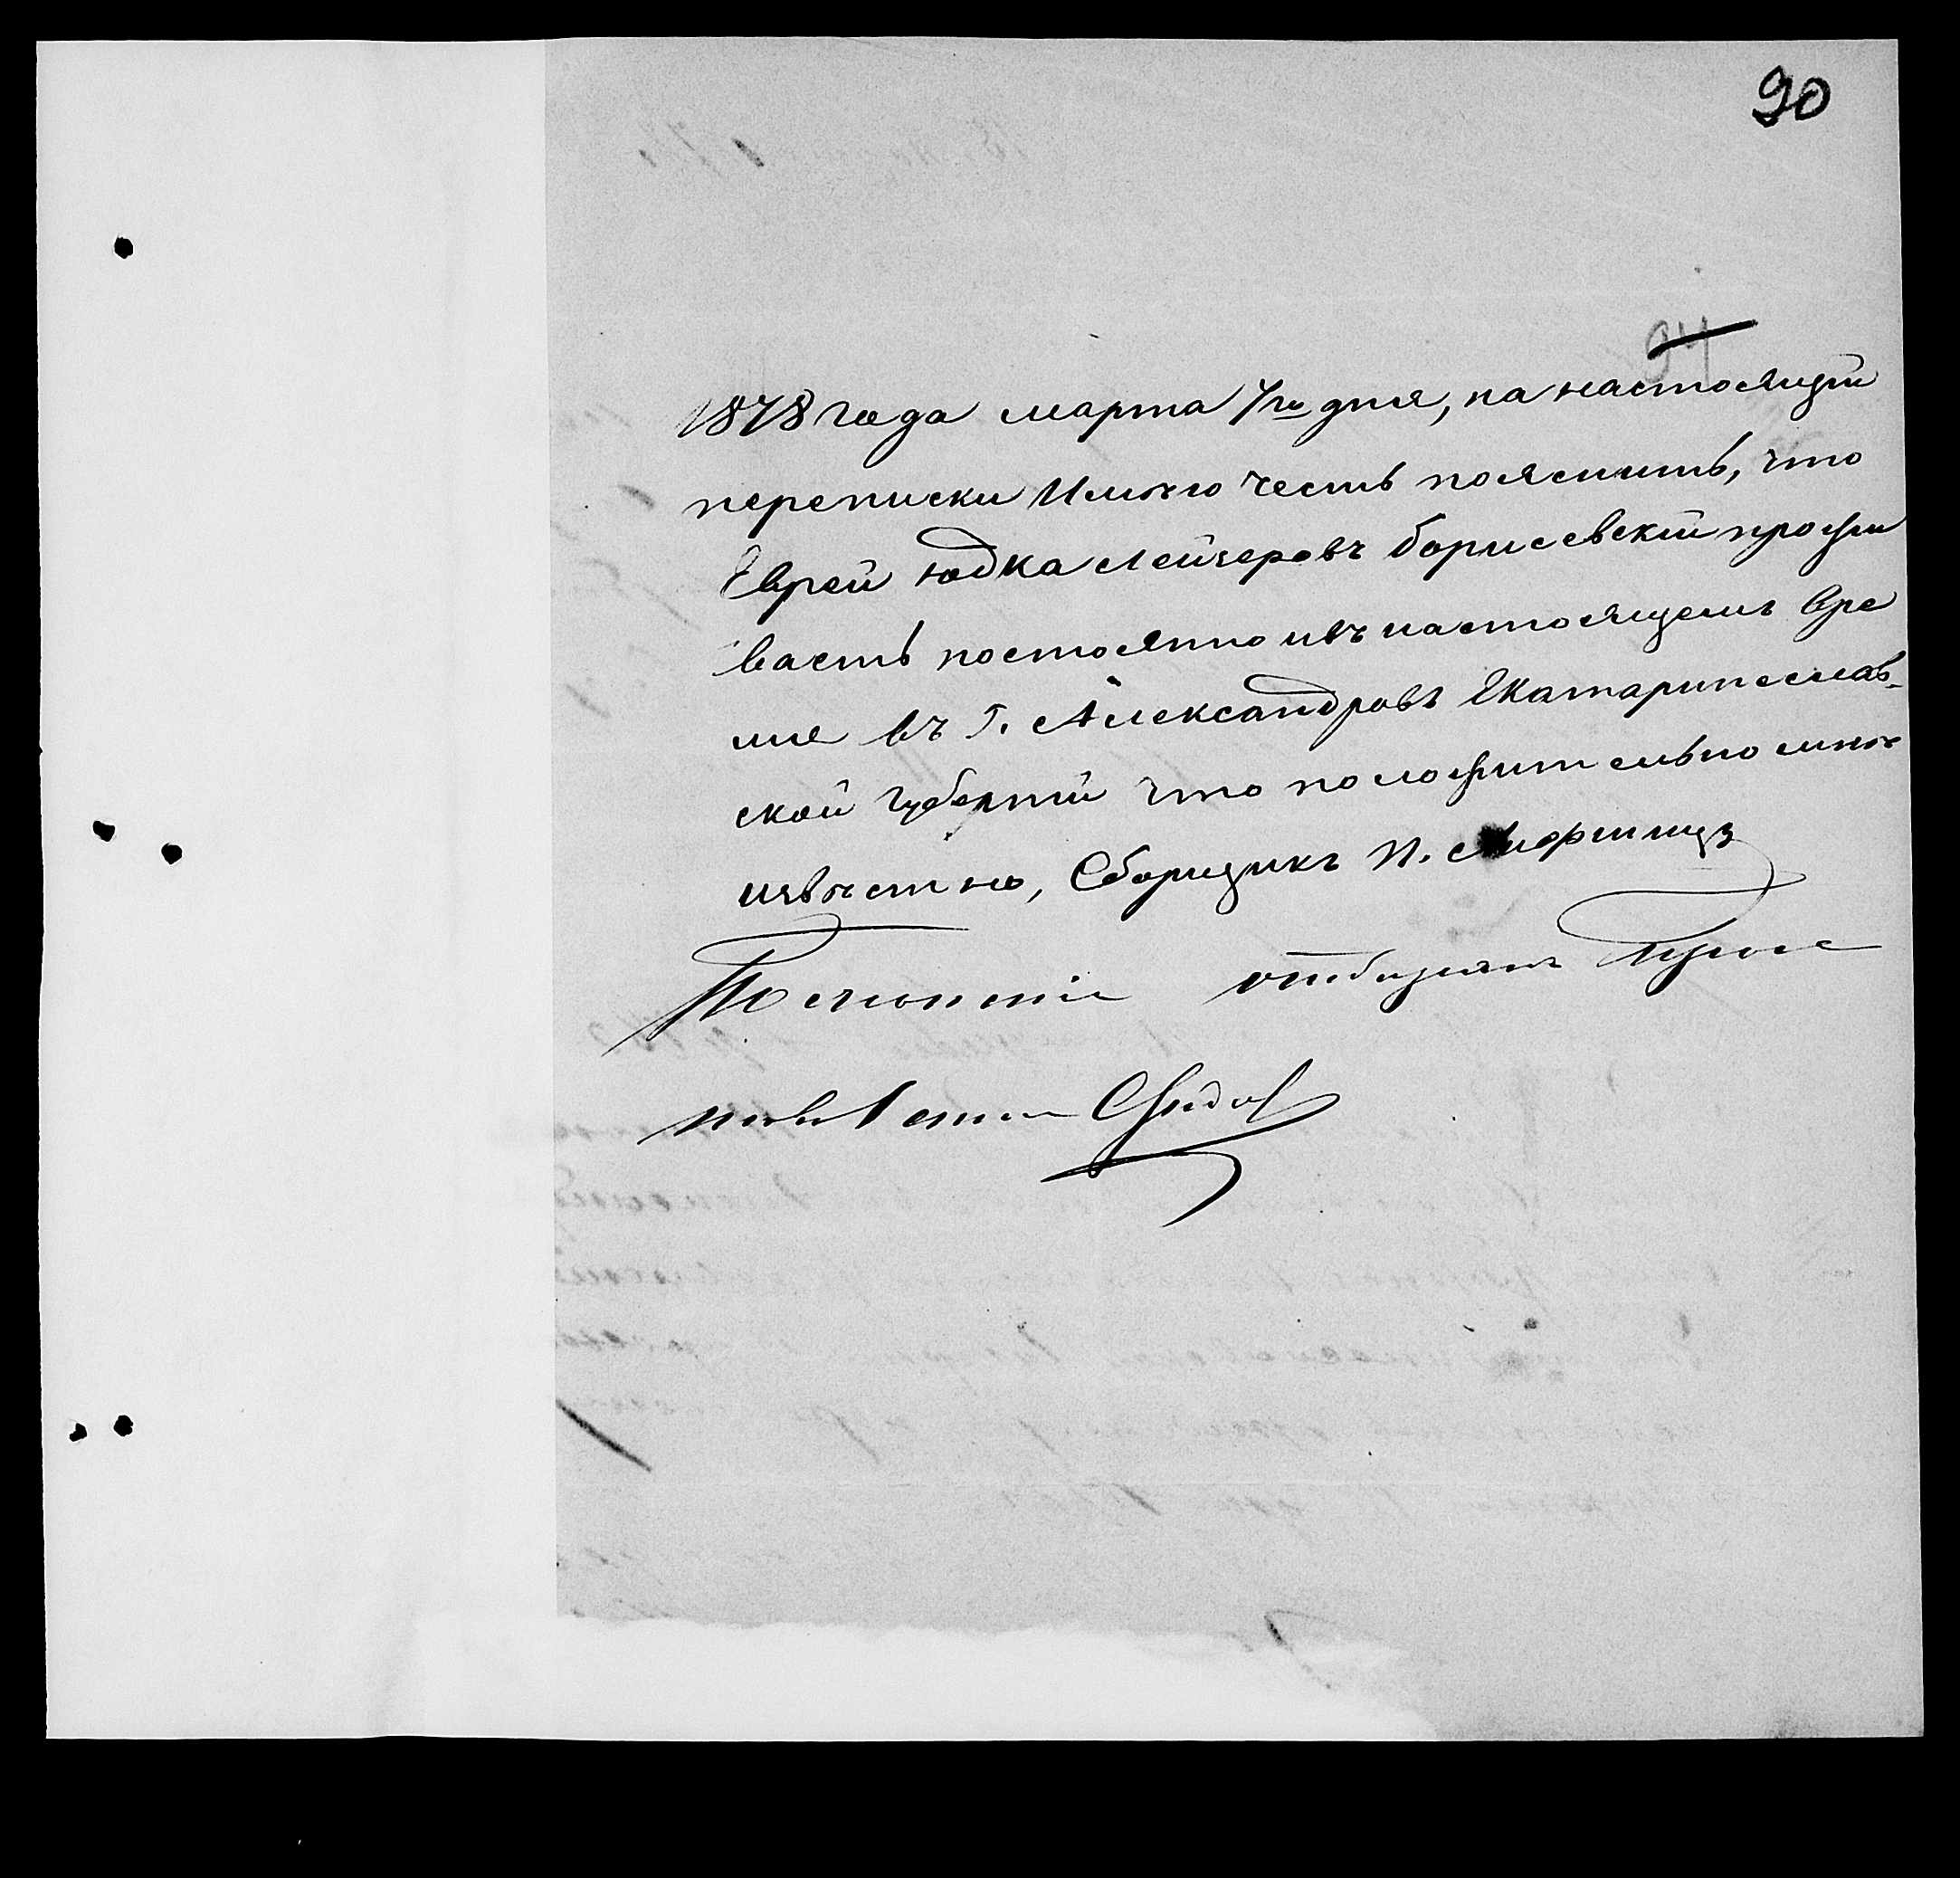 90
94
1878 года марта 7го дня, на настоящій
переписки Имѣю честь пояснить, что
Еврей Юдка Лейзеровъ Борисовскій прожи
ваетъ постоянно ивъ настоящемъ вре
мя въ Г. Александровъ Екатаринослав-
ской губерніи что положительно мнѣ
извѣстно, Сборщикъ И. Лифшицъ